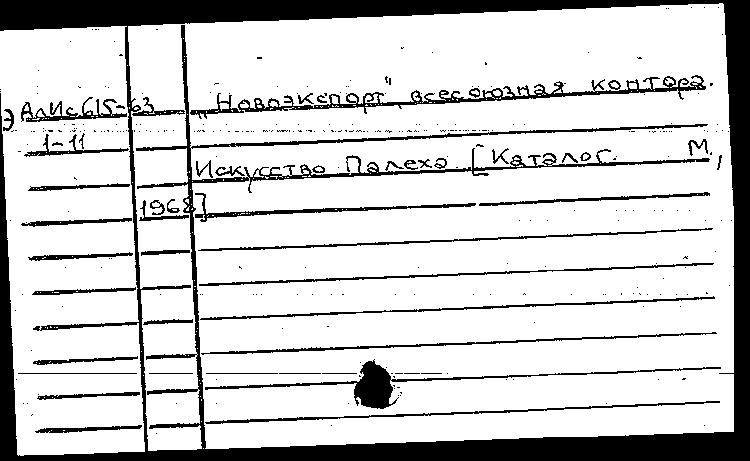 Э АлИс615-63 „Новоэкспорт", всесоюзная контора.
1-11
Искусство Палеха. [Каталог. М.,
1968]